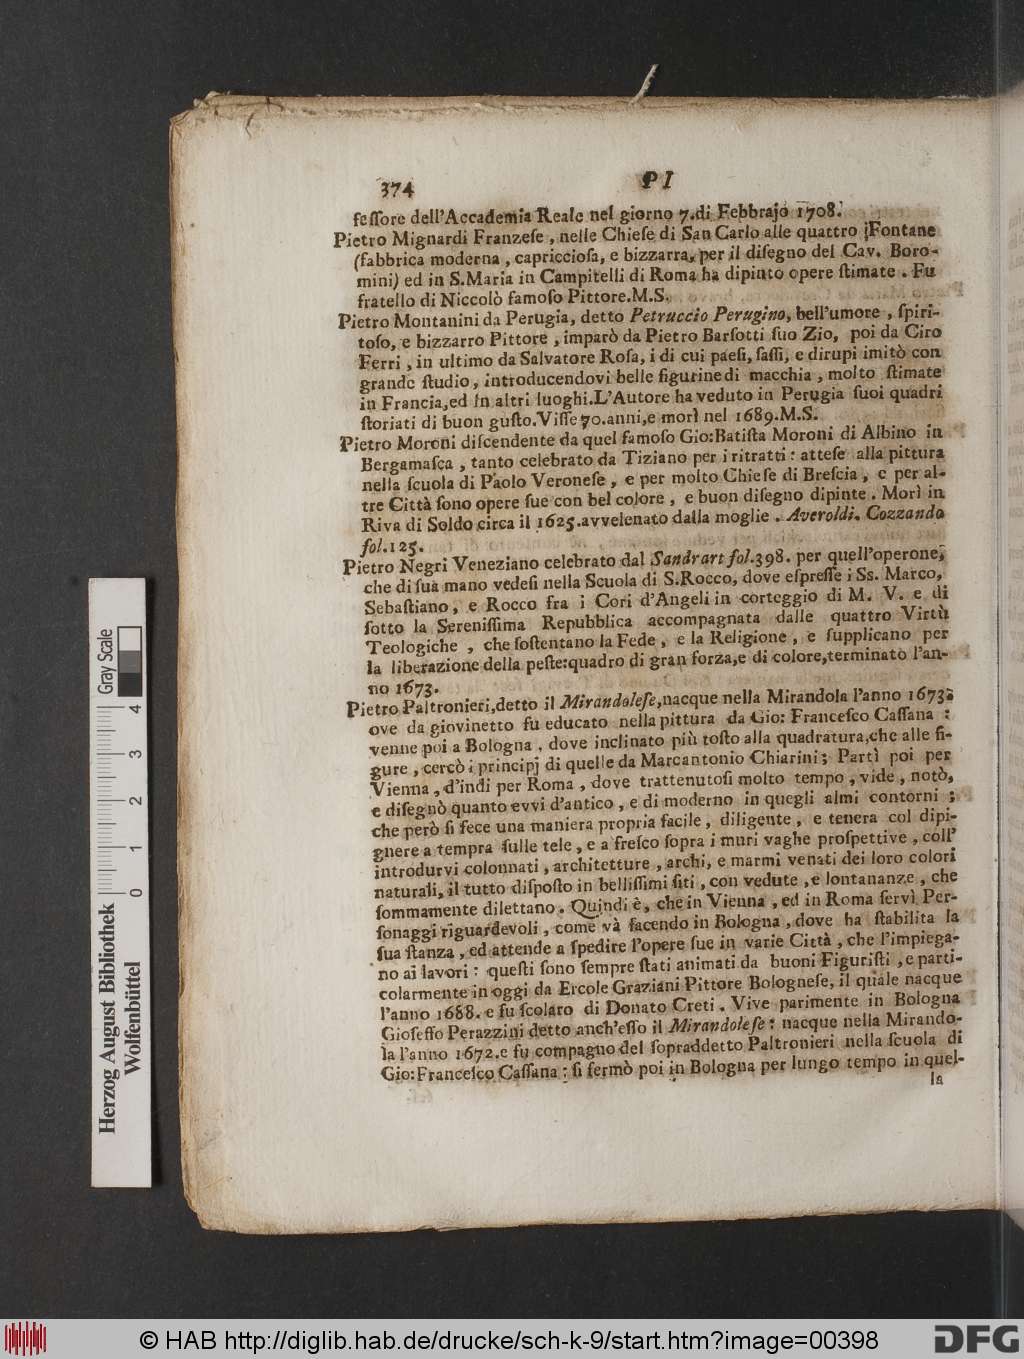 374 PI
feſſore dell'Accademia Reale nel giorno 7.di Febbrajo 1708.
Pietro Mignardi Franzeſe , nelle Chieſe di San Carlo alle quattro Fontane
(fabbrica moderna , capriccioſa, e bizzarra, per il diſegno del Cav. Boro-
mini) ed in S.Maria in Campitelli di Roma ha dipinto opere ſtimate . Fu
fratello di Niccolò famoſo Pittore.M.S.
Pietro Montanini da Perugia, detto Petruccio Perugino, bell'umore , ſpiri-
toſo, e bizzarro Pittore , imparò da Pietro Barſotti ſuo Zio, poi da Ciro
Ferri , in ultimo da Salvatore Roſa, i di cui paeſi, ſaſſi, e dirupi imitò con
grande ſtudio , introducendovi belle figurine di macchia , molto ſtimate
in Francia,ed in altri luoghi.L'Autore ha veduto in Perugia ſuoi quadri
ſtoriati di buon guſto.Viſſe 70.anni,e morì nel 1689.M.S.
Pietro Moroni diſcendente da quel famoſo Gio:Batiſta Moroni di Albino in
Bergamaſca , tanto celebrato da Tiziano per i ritratti: atteſe alla pittura
nella ſcuola di Paolo Veroneſe , e per molto Chieſe di Breſcia , e per al-
tre Città ſono opere ſue con bel colore , e buon diſegno dipinte . Morì in
Riva di Soldo circa il 1625.avvelenato dalla moglie . Averoldi. Cozzando
fol.125.
Pietro Negri Veneziano celebrato dal Sandrart fol.398. per quell'operone,
che di ſua mano vedeſi nella Scuola di S.Rocco, dove eſpreſſe i Ss. Marco,
Sebaſtiano, e Rocco fra i Cori d'Angeli in corteggio di M. V. e di
ſotto la Sereniſſima Repubblica accompagnata dalle quattro Virtù
Teologiche , che ſoſtentano la Fede , e la Religione , e ſupplicano per
la liberazione della peſte:quadro di gran forza,e di colore,terminato l'an-
no 1673.
Pietro Paltronieri,detto il Mirandoleſe,nacque nella Mirandola l'anno 1673.
ove da giovinetto fu educato nella pittura da Gio: Franceſco Caſſana :
venne poi a Bologna , dove inclinato più toſto alla quadratura,che alle fi-
gure , cercò i principj di quelle da Marcantonio Chiarini; Partì poi per
Vienna , d'indi per Roma , dove trattenutoſi molto tempo , vide , notò,
e diſegnò quanto evvi d'antico , e di moderno in quegli almi contorni ;
che però ſi fece una maniera propria facile, diligente , e tenera col dipi-
gnere a tempra ſulle tele , e a freſco ſopra i muri vaghe proſpettive , coll'
introdurvi colonnati , architetture , archi, e marmi venati dei loro colori
naturali, il tutto diſpoſto in belliſſimi ſiti , con vedute , e lontananze , che
ſommamente dilettano . Quindi è, che in Vienna , ed in Roma ſervì Per-
ſonaggi riguardevoli , come và facendo in Bologna , dove ha ſtabilita la
ſua ſtanza , ed attende a ſpedire l'opere ſue in varie Città , che l'impiega-
no ai lavori : queſti ſono ſempre ſtati animati da buoni Figuriſti , e parti-
colarmente in oggi da Ercole Graziani Pittore Bologneſe, il quale nacque
l'anno 1688. e fu ſcolaro di Donato Creti . Vive parimente in Bologna
Gioſeffo Perazzini detto anch'eſſo il Mirandoleſe: nacque nella Mirando-
la l'anno 1672.e fu compagno del ſopraddetto Paltronieri nella ſcuola di
Gio:Franceſco Caſſana : ſi fermò poi in Bologna per lungo tempo in quel-
la
Gray Scale
0 1 2 3 4
Herzog August Bibliothek
Wolfenbüttel
© HAB http://diglib.hab.de/drucke/sch-k-9/start.htm?image=00398
DFG